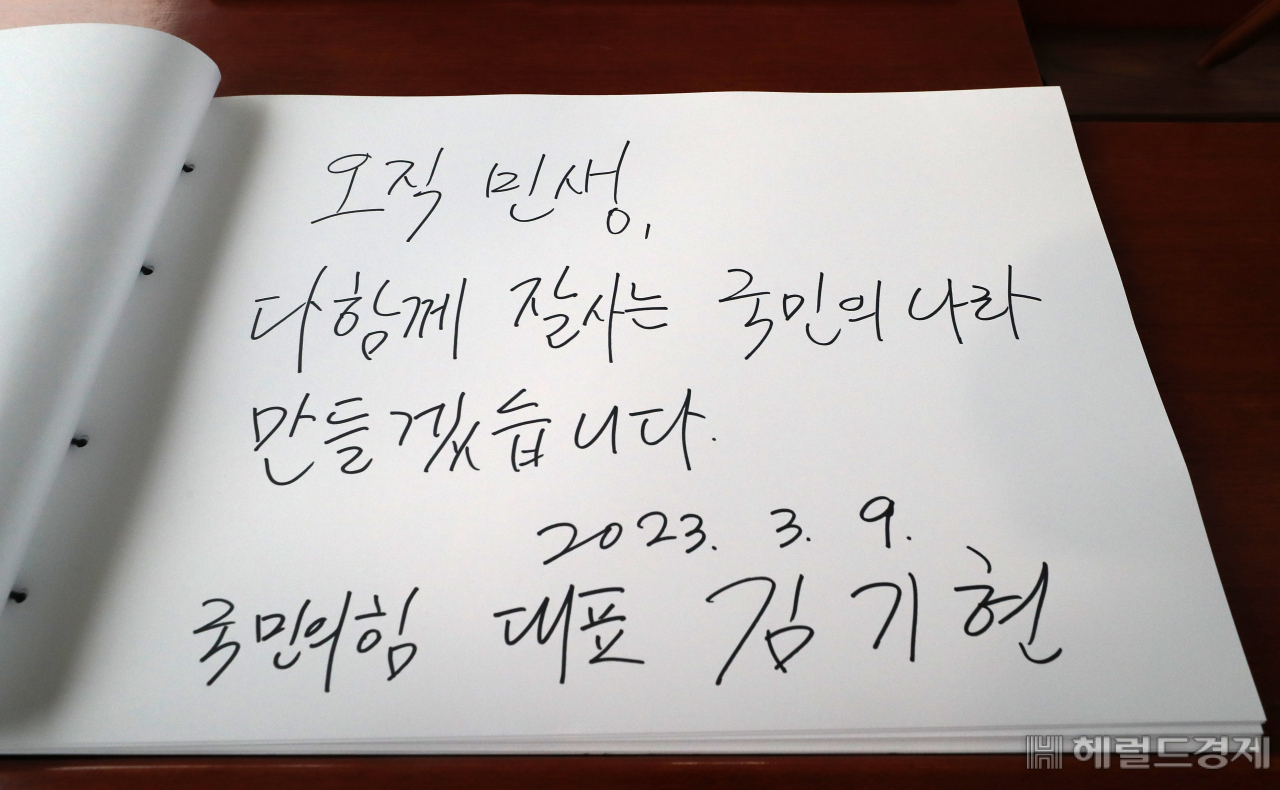 오직 민생,
다함께 잘사는 국민의 나라
만들겠습니다.
2023. 3. 9.
국민의힘 대표 김기현
헤럴드경제